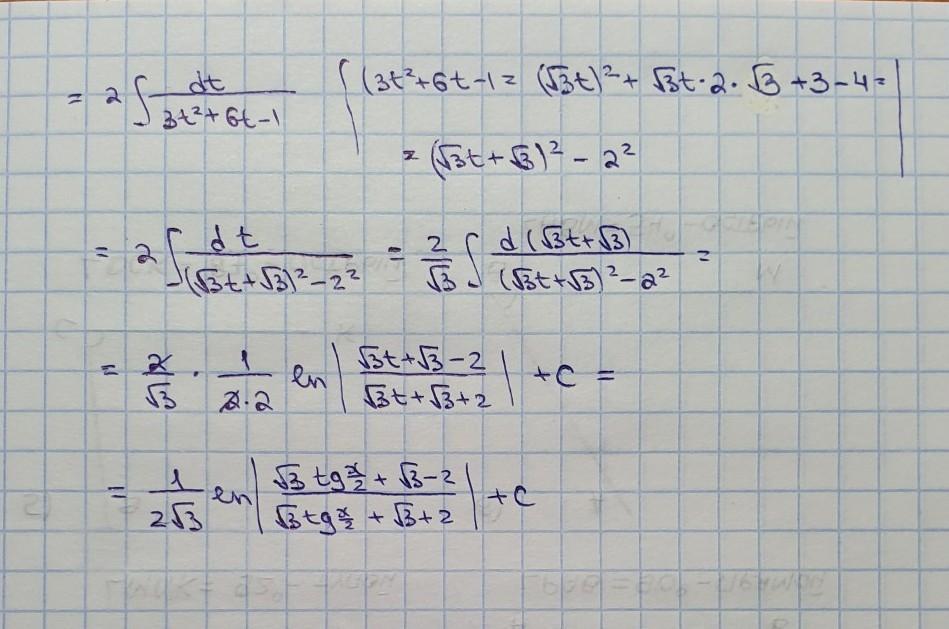 = 2∫ dt/(3t²+6t-1) | (3t²+6t-1 = (√3t)² + √3t·2·√3 +3-4 = |
= (√3t+√3)² - 2²
= 2∫ dt/((√3t+√3)²-2²) = 2/√3 ∫ d(√3t+√3)/((√3t+√3)²-2²) =
= 2/√3 · 1/(2·2) ln| (√3t+√3-2)/(√3t+√3+2) | +C =
= 1/(2√3) ln| (√3 tg x/2 + √3-2)/(√3 tg x/2 + √3+2) | +C